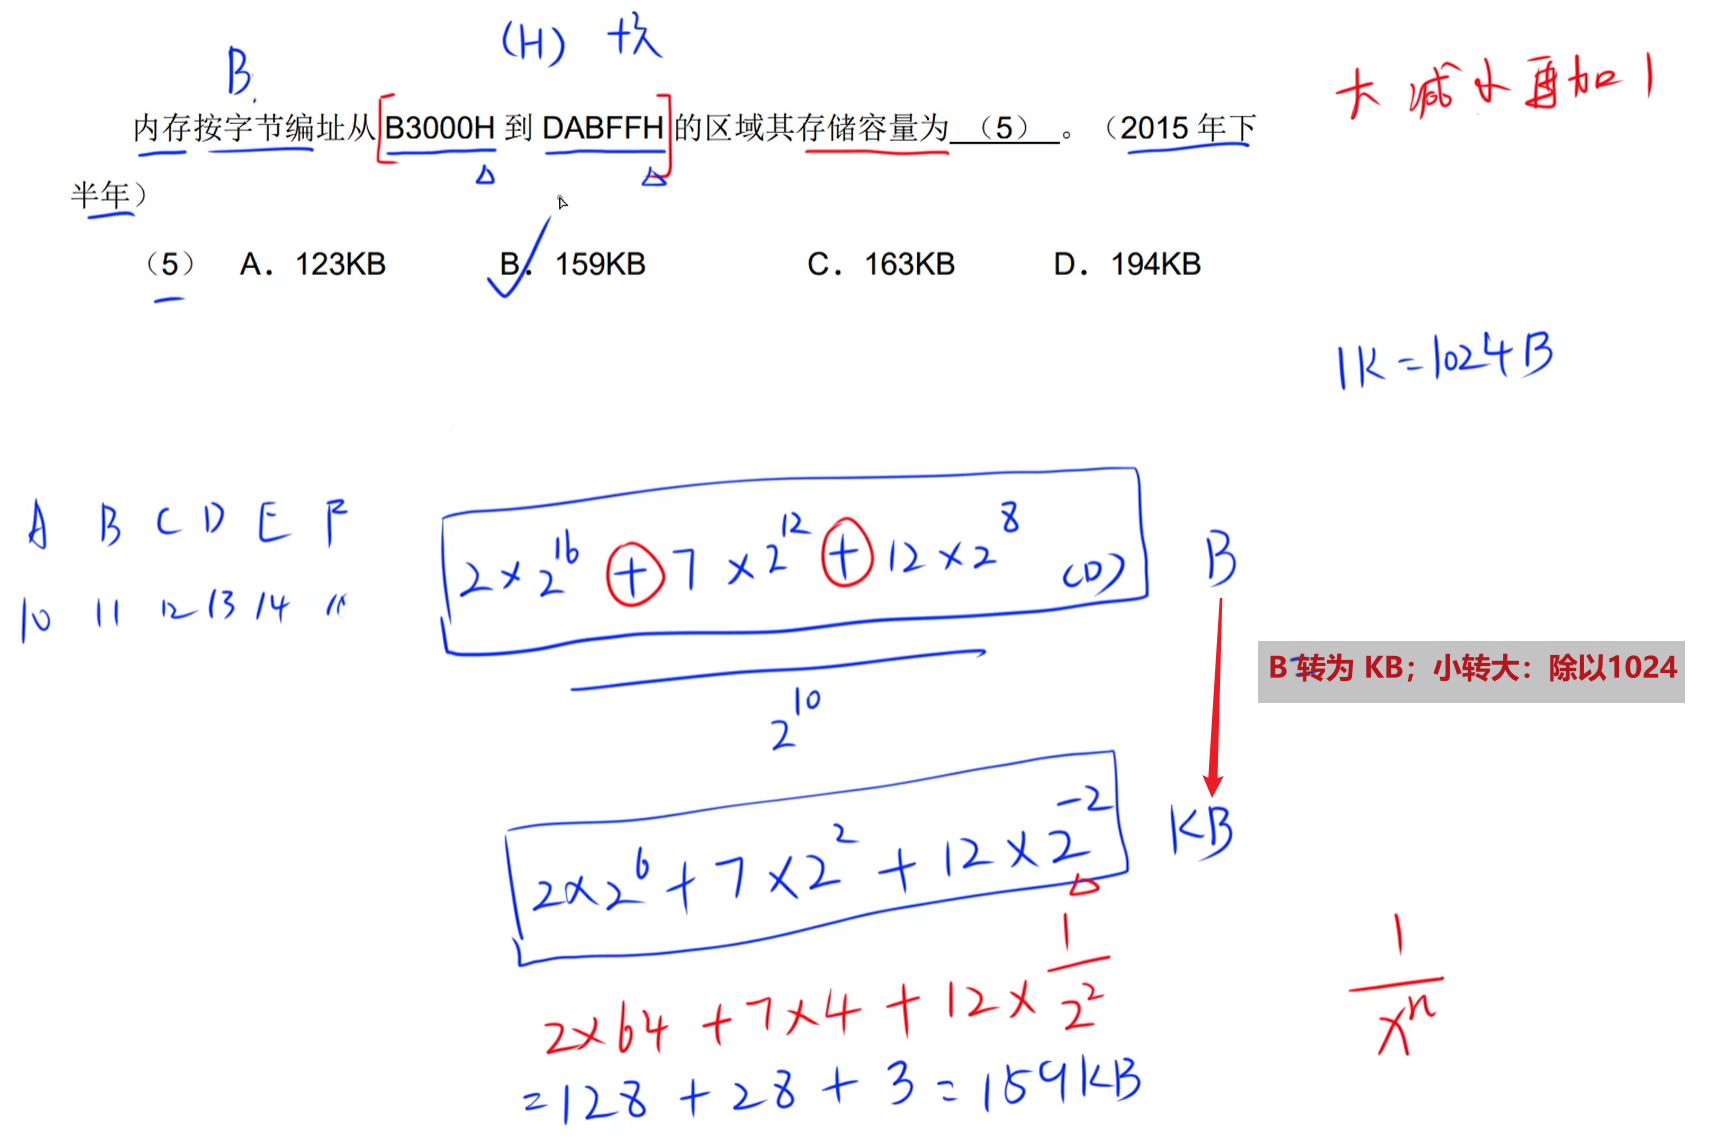 (H) 十六
B.
大减小再加1
内存按字节编址从 B3000H 到 DABFFH 的区域其存储容量为 （5） 。（2015 年下
半年）
（5） A．123KB B．159KB C．163KB D．194KB
1K=1024B
A B C D E F
10 11 12 13 14
2×2^16 + 7×2^12 + 12×2^8 (D) B
B 转为 KB；小转大：除以1024
2^10
2×2^6 + 7×2^2 + 12×2^-2 KB
2×64 + 7×4 + 12×1/2^2
1/x^n
=128 + 28 + 3 = 159KB